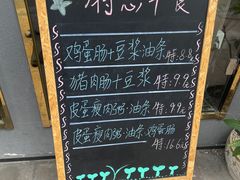 特惠早餐
鸡蛋肠+豆浆油条 特:8.8元
猪肉肠+豆浆 特:9.9元
皮蛋瘦肉粥·油条 特:9.9元
皮蛋瘦肉粥·油条·鸡蛋肠
特:16.6元